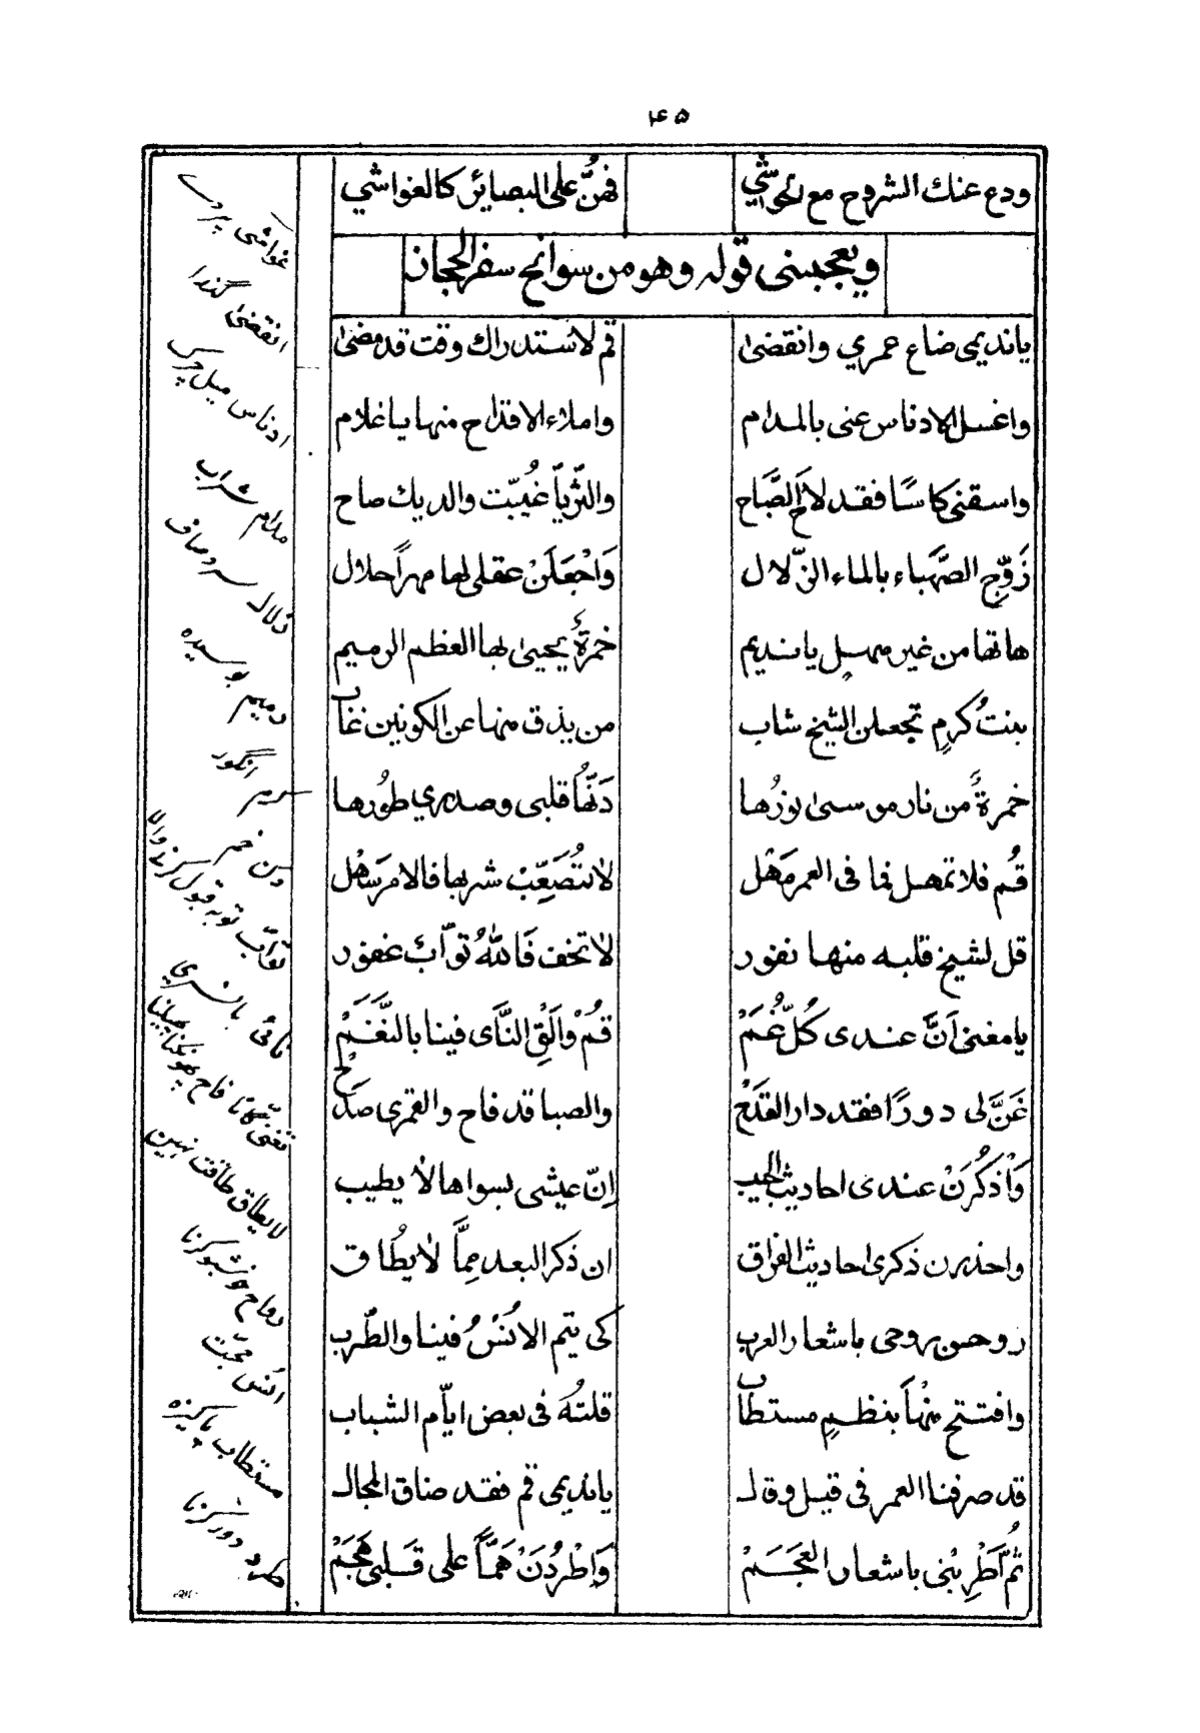 ۴۵
ودع عنك الشروح مع الحواشي فهنّ على البصائر كالغواشي
ويعجبنى قوله وهو من سوانح سفر الحجاز
يا نديمى ضاع عمري وانقضىٰ قم لاستدراك وقت قد مضىٰ
واغسل الادناس عنى بالمدام واملاء الاقداح منها يا غلام
واسقنى كاسًا فقد لاحَ الصَّباح والثّريّا غُيبّت والديك صاح
زَوّجِ الصَّهباء بالماء الزّلال وَاجْعَلَنْ عقلى لها مهراً حلال
هاتها من غير مهلٍ يا نديم خمرةٌ يحيىٰ بها العظم الرميم
بنتُ كرمٍ تجعلن الشيخ شاب من يذق منها عن الكونين غاب
خمرةٌ من نار موسىٰ نورُها دَنّهُا قلبى وصدري طوُرها
قُم فلا تمهل فما فى العمر مَهْل لا تُصَعِّبْ شربها فالامر سَهْل
قل لشيخ قلبه منها نفور لا تخف فَاللّهُ توّابٌ غفور
يا مغنى اَنَّ عندى كُلّ غُمَمْ قُمْ وَالْقِ النَّاى فينا بالنَّغَمْ
غَنَّ لى دورًا فقد دار القَدَحْ والصبا قد فاح والقمرى صَدَحْ
وَاْذكُرَنْ عندى احاديث الحبيب اِنّ عيشى بسواها لا يطيب
واحذرن ذكرى احاديث الفراق ان ذكر البعد مِمَّا لا يُطاق
روحن روحى باشعار العرب كى يتم الانُسْ فينا والطّرب
وافتتح مِنْهاَ بنظمٍ مستطاب قلتُه فى بعض ايّام الشباب
قد صرفنا العمر فى قيل وقال يا نديمى قم فقد ضاق المجال
ثُمَّ اَطْرِبْنى باشعار العَجَمْ وَاطْرُدَنْ هَمًّا على قَلبى هَجَمْ
غواشى پردے
انقضىٰ گذرا
ادناس ميل چرک
مدام شراب
زلال سرد وصاف
رميم بوسيده
كرم انگور
دن خم
توّاب توبه قبول كرنے والا
نائى بانسرى
تغنّى گانا فاح
لا يطاق طاقت نہيں
رواح خوشبو كرنا
انس محبّت
مستطاب پاکيزه
طرد دور كرنا